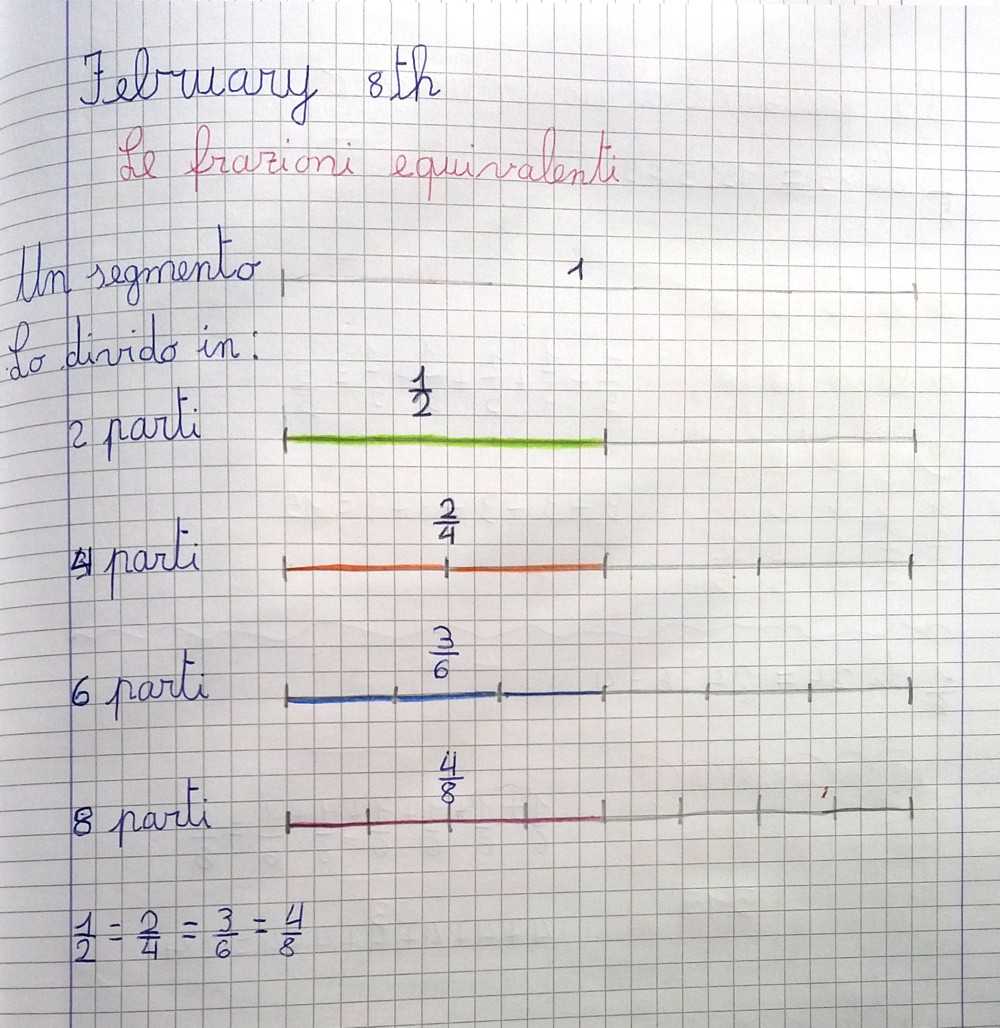 February 8th
Le frazioni equivalenti
Un segmento 1
Lo divido in:
1/2
2 parti
2/4
4 parti
3/6
6 parti
4/8
8 parti
1/2 = 2/4 = 3/6 = 4/8